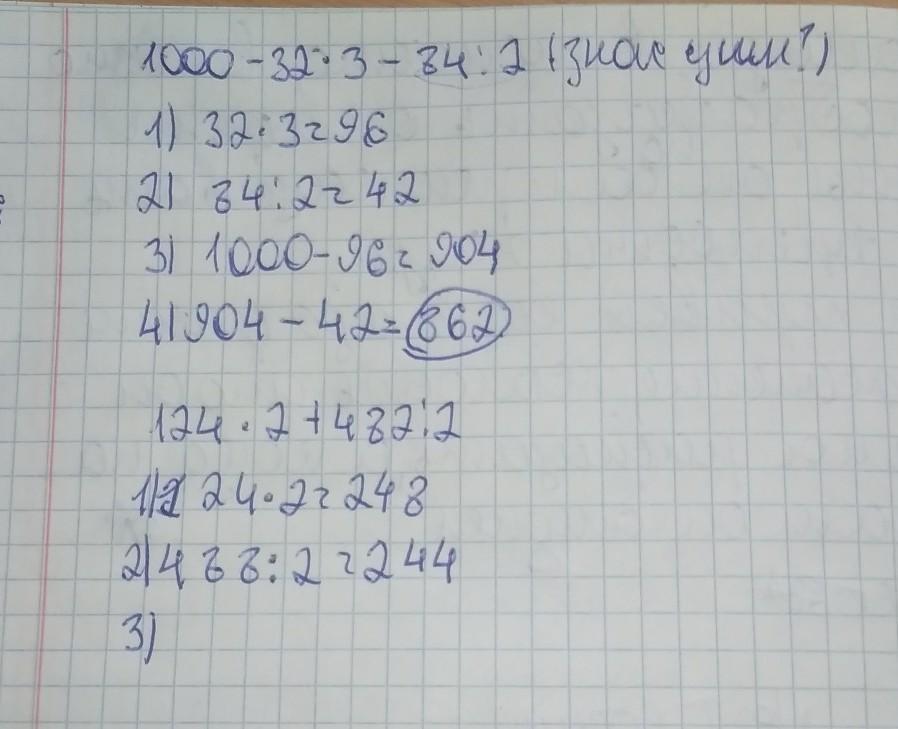 1000 - 32 · 3 - 84 : 2 (знак умн?)
1) 32 · 3 = 96
2) 84 : 2 = 42
3) 1000 - 96 = 904
4) 904 - 42 = 862
124 · 2 + 482 : 2
1) 124 · 2 = 248
2) 488 : 2 = 244
3)